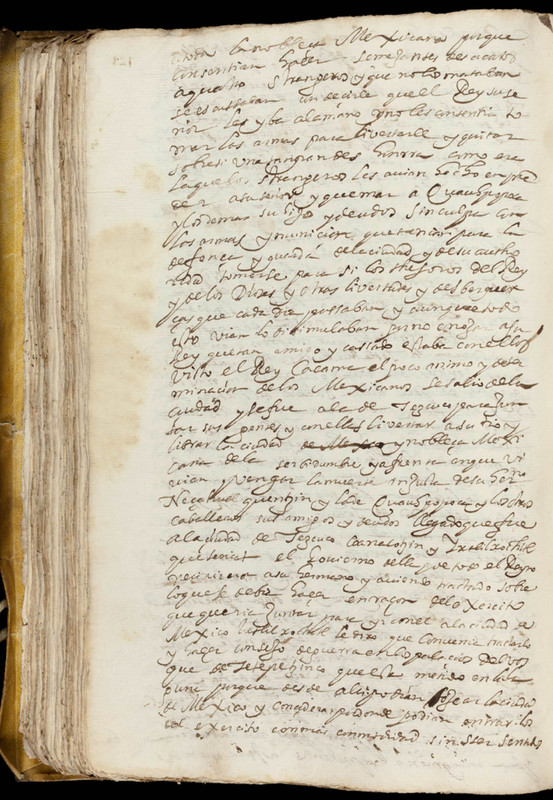 toda la nobleza Mexicana porque
consentian hazer semejantes desacatos
a quatro strangeros y que no los mataban
se escusaban con decirle que el Rey su se
ñor les yba a la mano y no les consentia to
mar las armas para livertarle y quitar
sobre si una tan grande honrra como era
la que los strangeros les avian hecho en pren
der a su señor y quemar a Quauhpopoca
y los demas su hijo y deudos sin culpa con
las armas y municion que tenian para la
defença y guarda de la ciudad y de su autho
ridad tomarse para si los thesoros del Rey
y de los Dioses y otras livertades y desberguen
ças que cada dia passaban y aunque todo
esto vian lo disimulaban por no enojar a su
Rey que tan amigo y casado estaba con ellos
Visto el Rey Cacama el poco animo y deter
minacion de los Mexicanos se salio de la
ciudad y se fue a la de Tezcuco para jun
tar sus gentes y con ellas livertar a su tio y
librar la ciudad de Mexico y nobleça Mexi
cana de la serbidumbre y afrenta en que vi
vian y vengar la muerte injusta de su hermano
Neçahualquentzin y la de Quauhpopoca y los otros
caballeros sus amigos y deudos llegado que fue
a la ciudad de Tezcuco Coanacotzin y Ixtlilxochitl
que tenian el govierno della y de todo el Reyno
recivieron a su hermano y aviendo tratado sobre
lo que se debia haçer en raçon del exercito
que queria juntar para yr con el a la ciudad de
Mexico Ixtlilxochitl le dixo que convenia tratarlo
y haçer consejo de guerra en los palacios del bos
que de Tepetzinco que esta metido en la la
guna porque desde alli podian ojear la ciudad
de Mexico y considerar por donde podian entrar con
el exercito con mas commodidad sin ser sentidos